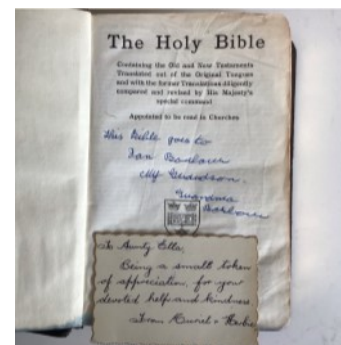 The Holy Bible
Containing the Old and New Testaments
Translated out of the Original Tongues
and with the former Translations diligently
compared and revised by His Majesty's
special command
Appointed to be read in Churches
This Bible goes to
Ian
My Grandson.
Grandma
To Aunty Ella,
Being a small token
of appreciation, for your
devoted help and kindness
From Muriel +